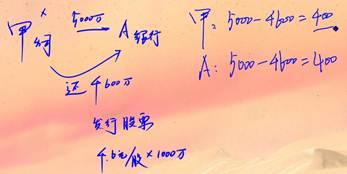 甲公司 5000万 A银行
还 4600万
发行股票
4.6元/股×1000万
甲：5000-4600=400
A：5000-4600=400